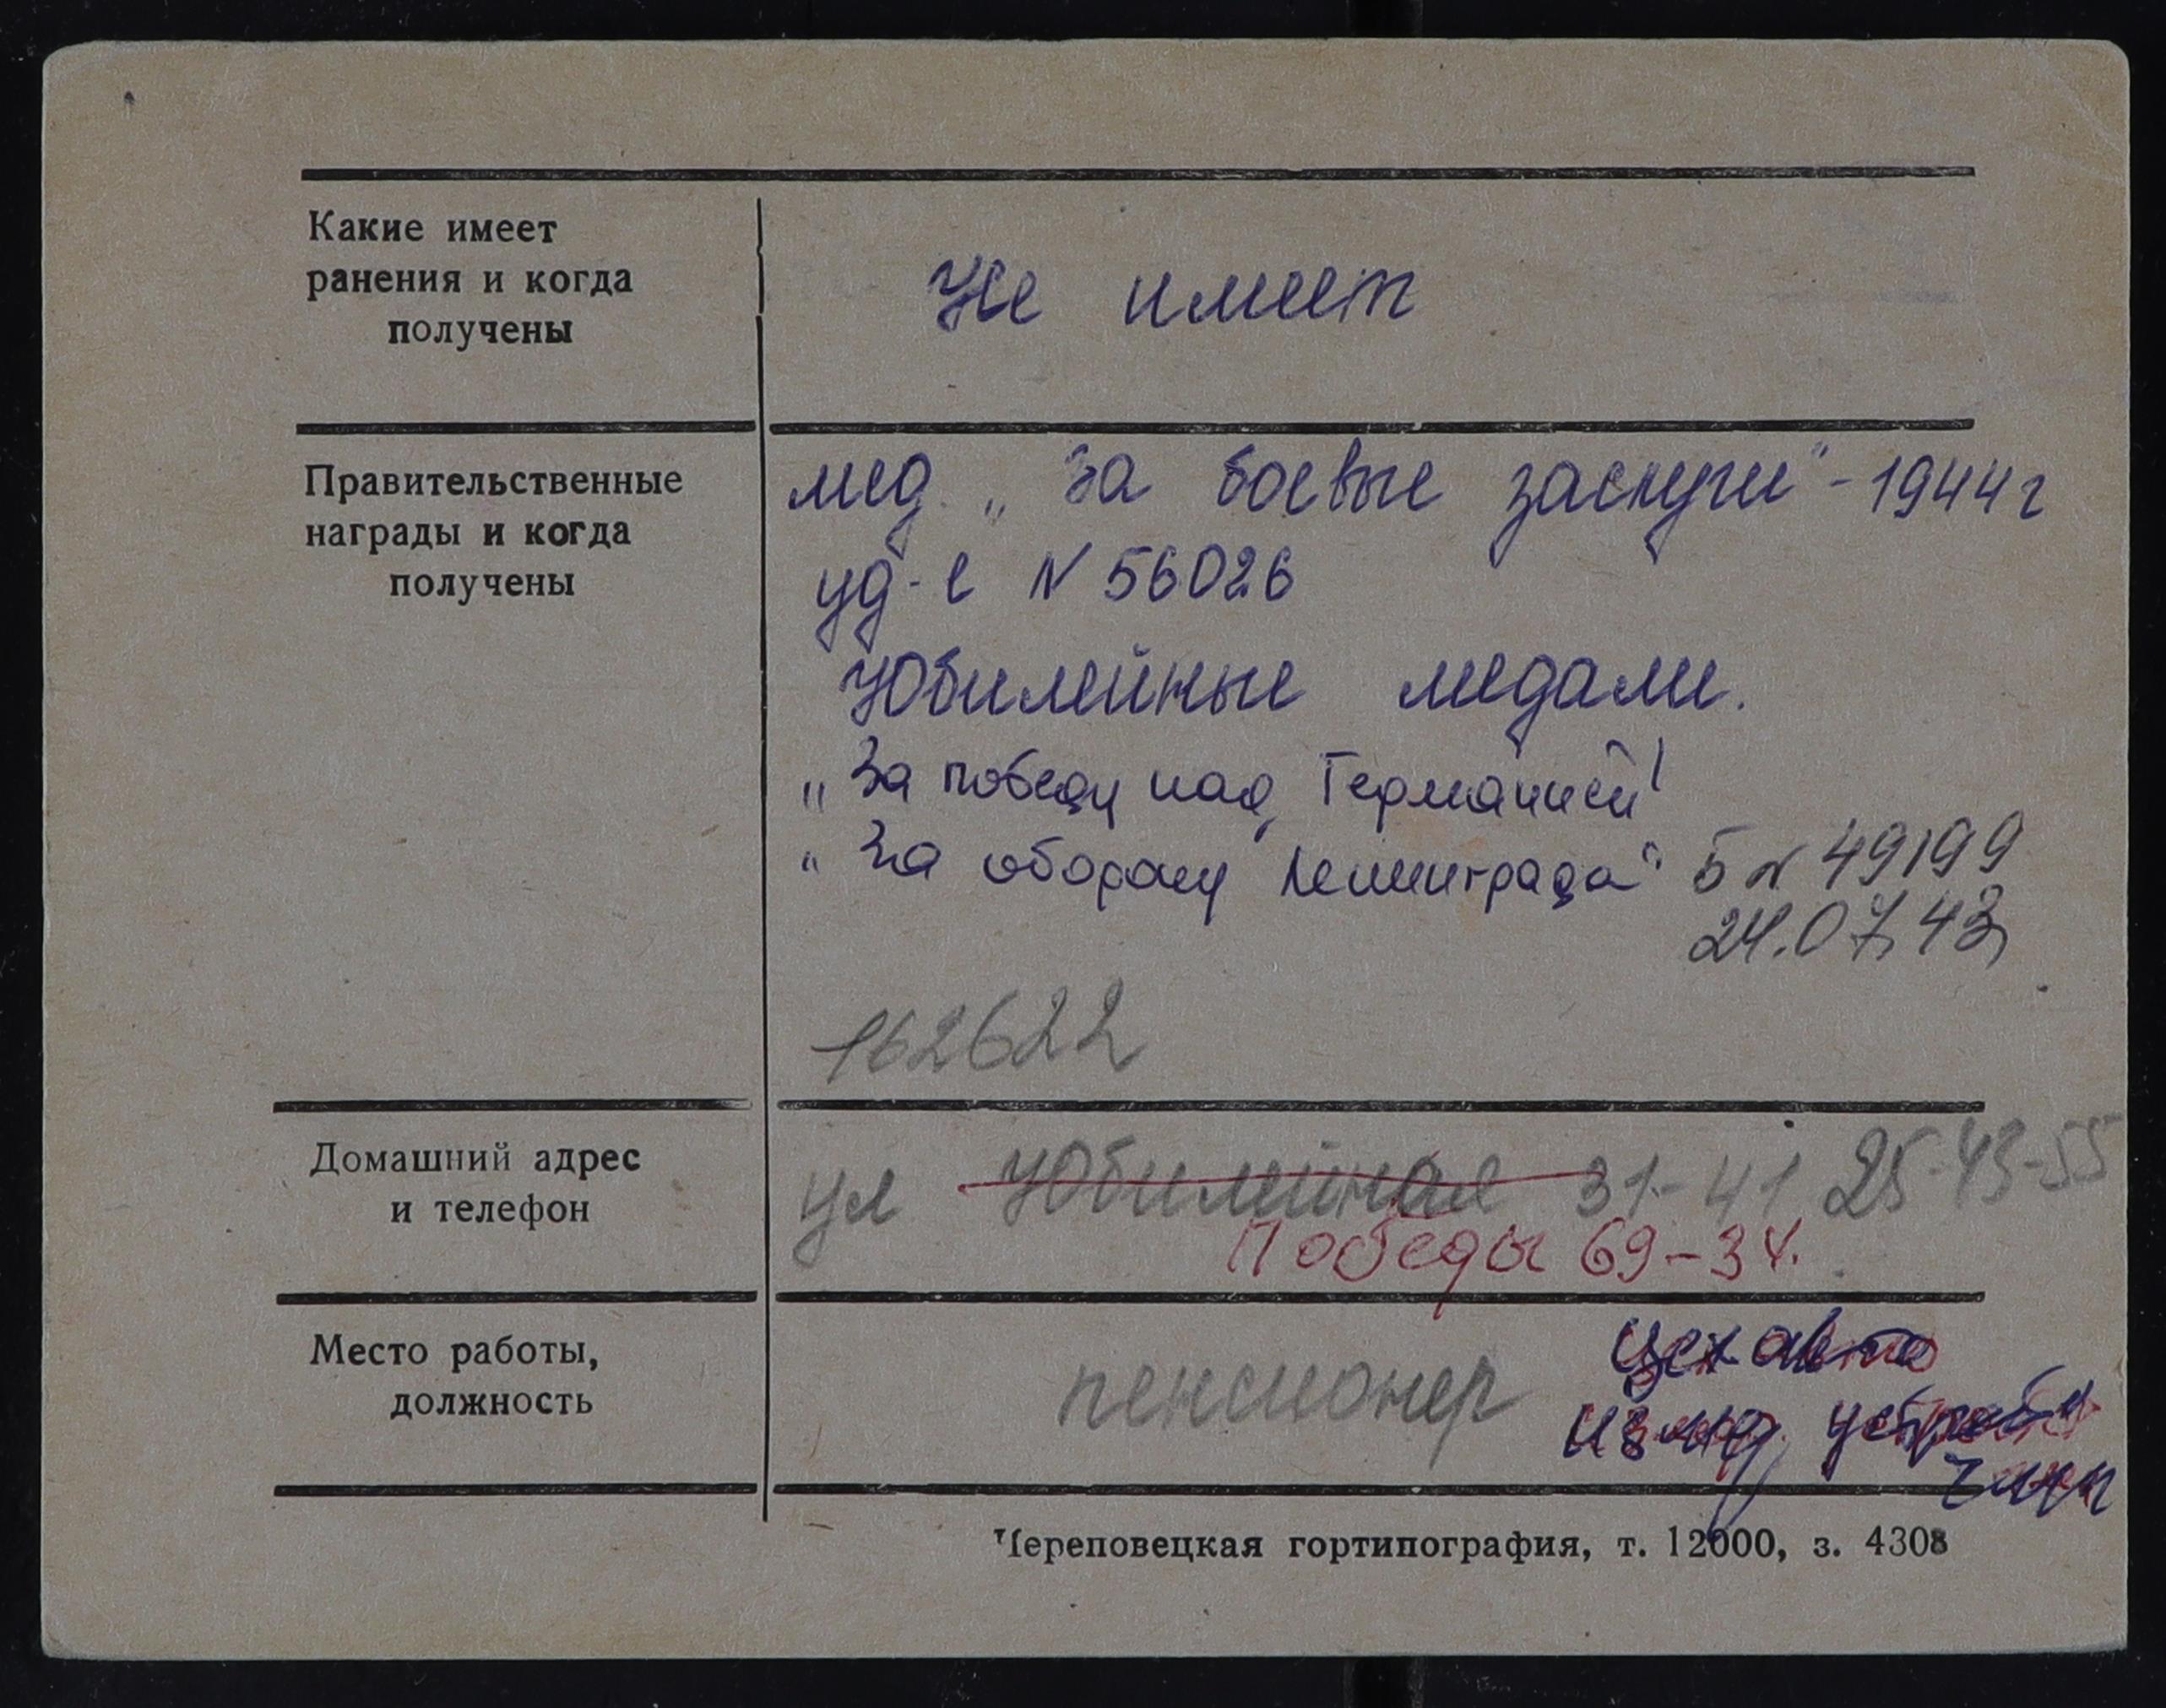 Какие имеет
ранения и когда
получены
Не имеет
Правительственные
награды и когда
получены
мед. „За боевые заслуги" - 1944 г
уд-е N 56026
Юбилейные медали.
„За победу над Германией"
„За оборону Ленинграда" Б N 49199
24.07.43
162622
Домашний адрес
и телефон
ул Юбилейная 31-41 25-43-55
Победы 69-34.
Место работы,
должность
пенсионер
цех авто
Череповецкая гортипография, т. 12000, з. 4308